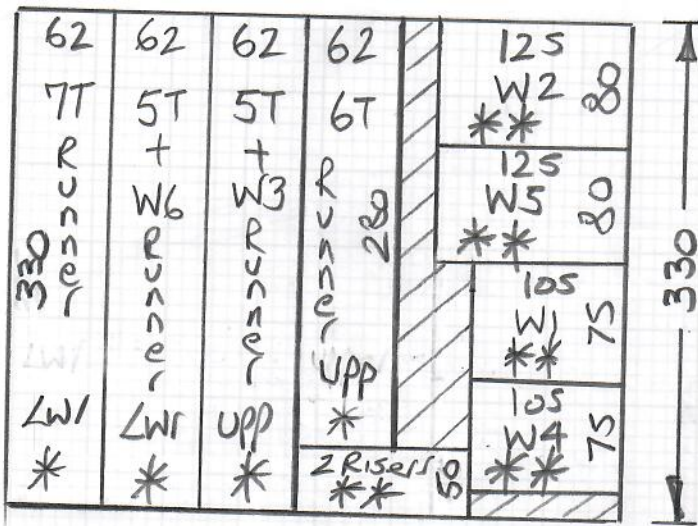 62
7T
Runner
330
LWr
*
62
5T
+
W6
Runner
LWr
*
62
5T
+
W3
Runner
UPP
*
62
6T
Runner
280
UPP
*
2 Risers
**
50
125
W2
80
**
125
W5
80
**
105
W1
75
**
105
W4
75
**
330